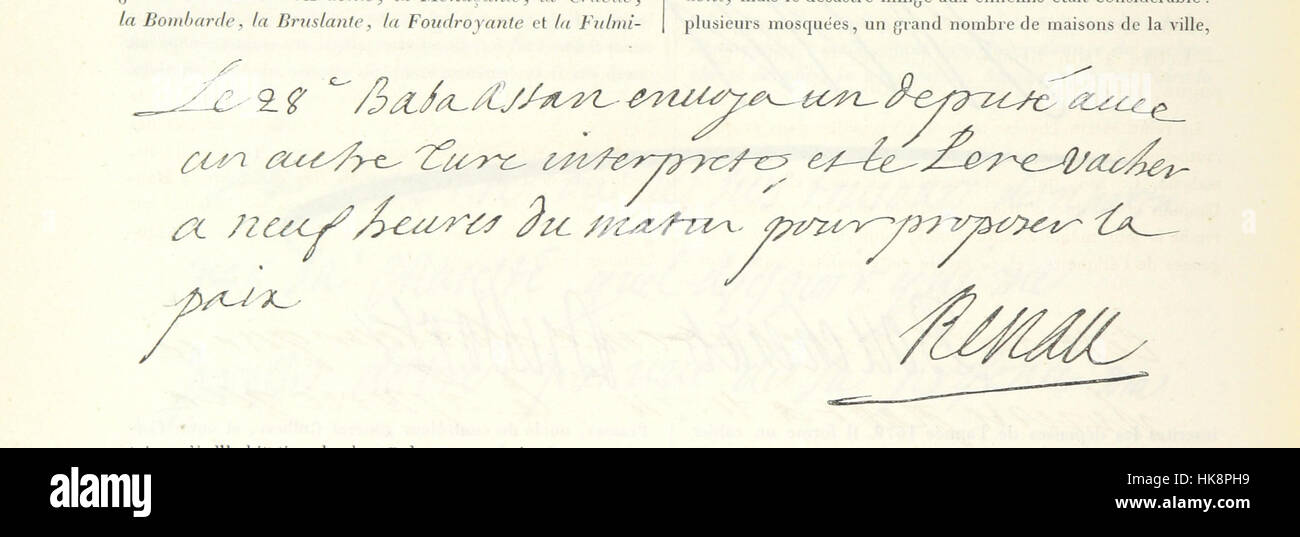 la Bombarde, la Bruslante, la Foudroyante et la Fulmi-
plusieurs mosquées, un grand nombre de maisons de la ville,
Le 28e Baba Assan envoya un deputé avec
un autre Turc interprete, et le Pere Vacher
a neuf heures du matin pour proposer la
paix
Renau
alamy
a
alamy
Image ID: HK8PH9
www.alamy.com